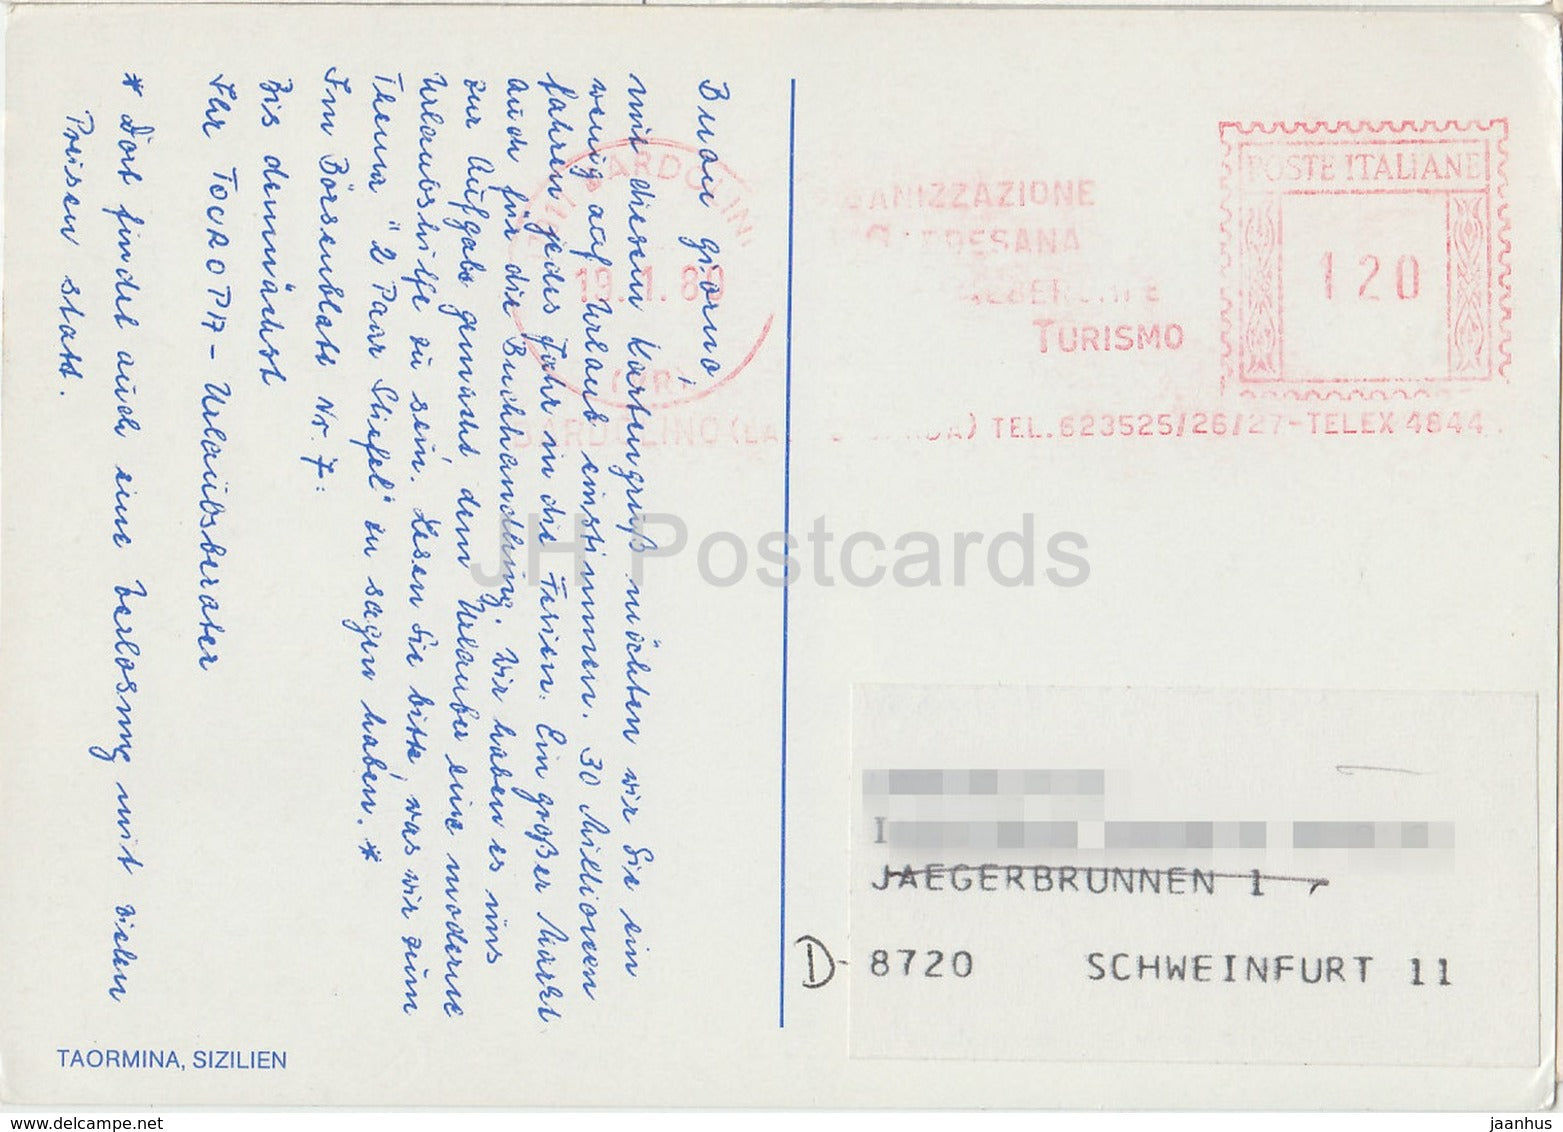 Buon giorno,
mit diesem Kartengruß möchten wir Sie ein
wenig auf Urlaub einstimmen. 30 Millionen
fahren jedes Jahr in die Ferien. Ein großer Markt
auch für die Buchhandlung. Wir haben es uns
zur Aufgabe gemacht, dem Urlauber eine moderne
Urlaubshilfe zu sein. Lesen Sie bitte, was wir zum
Thema "2 Paar Stiefel" zu sagen haben. *
Im Börsenblatt Nr. 7:
Bis demnächst
Ihr TOUROPA-Urlaubsberater
* Dort findet auch eine Verlosung mit vielen
Preisen statt.
TAORMINA, SIZILIEN
BARDOLINO
19.1.80
(VR)
GANIZZAZIONE
TURISMO
POSTE ITALIANE
120
BARDOLINO TEL.623525/26/27-TELEX 4844
JAEGERBRUNNEN 1
D- 8720 SCHWEINFURT 11
JH Postcards
www.delcampe.net
jaanhus